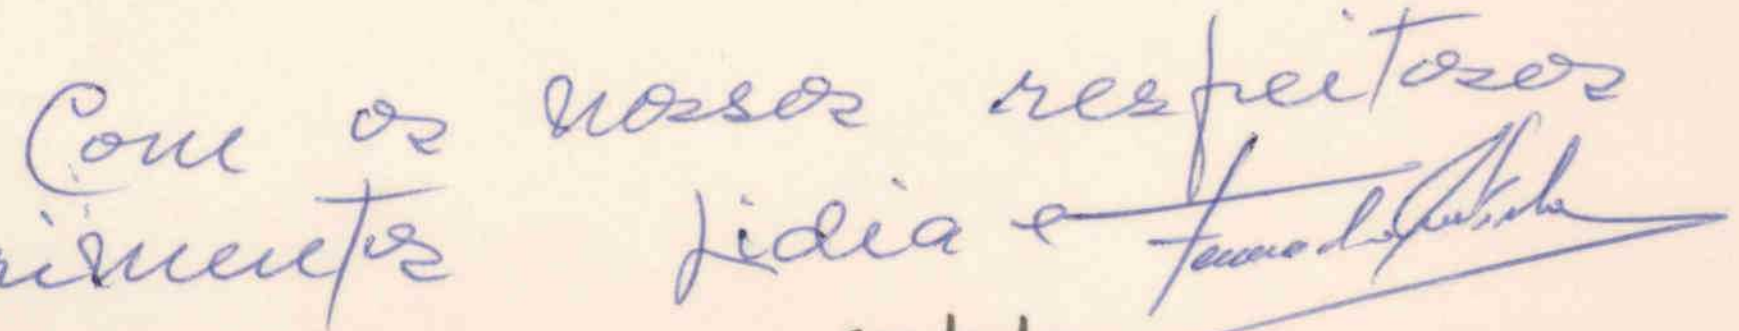 Com os nossos respeitosos
rimentos Lidia e